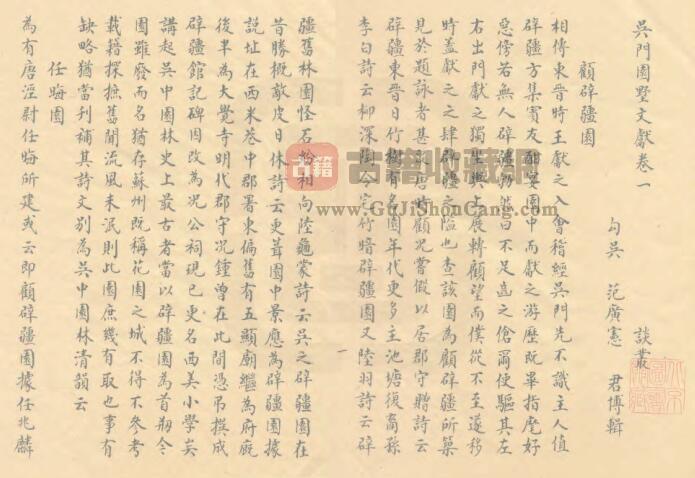 吳門園墅文獻卷一
談叢
勾吳　范廣憲　君博輯
顧辟疆園
相傳東晉時王獻之入會稽經吳門先不識主人值
辟疆方集賓友酣宴園中而獻之游歷既畢指麾好
惡傍若無人辟疆勃然曰不足齒之傖爾使驅其左
右出門獻之獨輿上展轉顧望而僕從不至遂移
時蓋獻之之肆辟疆之隘也查該園為顧辟疆所築
見於題詠者甚　唐時顧況嘗假以居郡守贈詩云
辟疆東晉日竹樹有名園年代更多主池塘復裔孫
李白詩云柳深陶令宅竹暗辟疆園又陸羽詩云辟
一
疆舊林園怪石紛相向陸龜蒙詩云吳之辟疆園在
昔勝概敵皮日休詩云更葺園中景應為辟疆園據
說址在西米巷中郡署東偏舊有五顯廟繼為府廨
後半為大覺寺明代郡守況鍾曾在此間憑弔撰成
辟疆館記碑因改為況公祠現已更名西美小學矣
講起吳中園林史上最古者當以辟疆園為首剏今
園雖廢而名猶存蘇州既稱花園之城不得不參考
載籍探撫舊聞流風未泯則此園庶幾有取也事有
缺略猶當刊補其詩文別為吳中園林清韻云
任晦園
為有唐涇尉任晦所建或云即顧辟疆園據任兆麟
古籍收藏网
www.GuJiShouCang.com